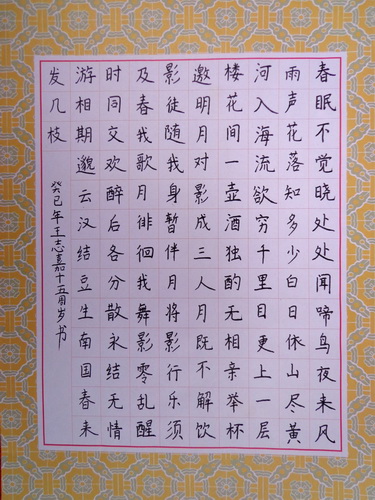 春眠不觉晓处处闻啼鸟夜来风
雨声花落知多少白日依山尽黄
河入海流欲穷千里目更上一层
楼花间一壶酒独酌无相亲举杯
邀明月对影成三人月既不解饮
影徒随我身暂伴月将影行乐须
及春我歌月徘徊我舞影零乱醒
时同交欢醉后各分散永结无情
游相期邈云汉结豆生南国春来
发几枝
癸巳年王志嘉十五周岁书